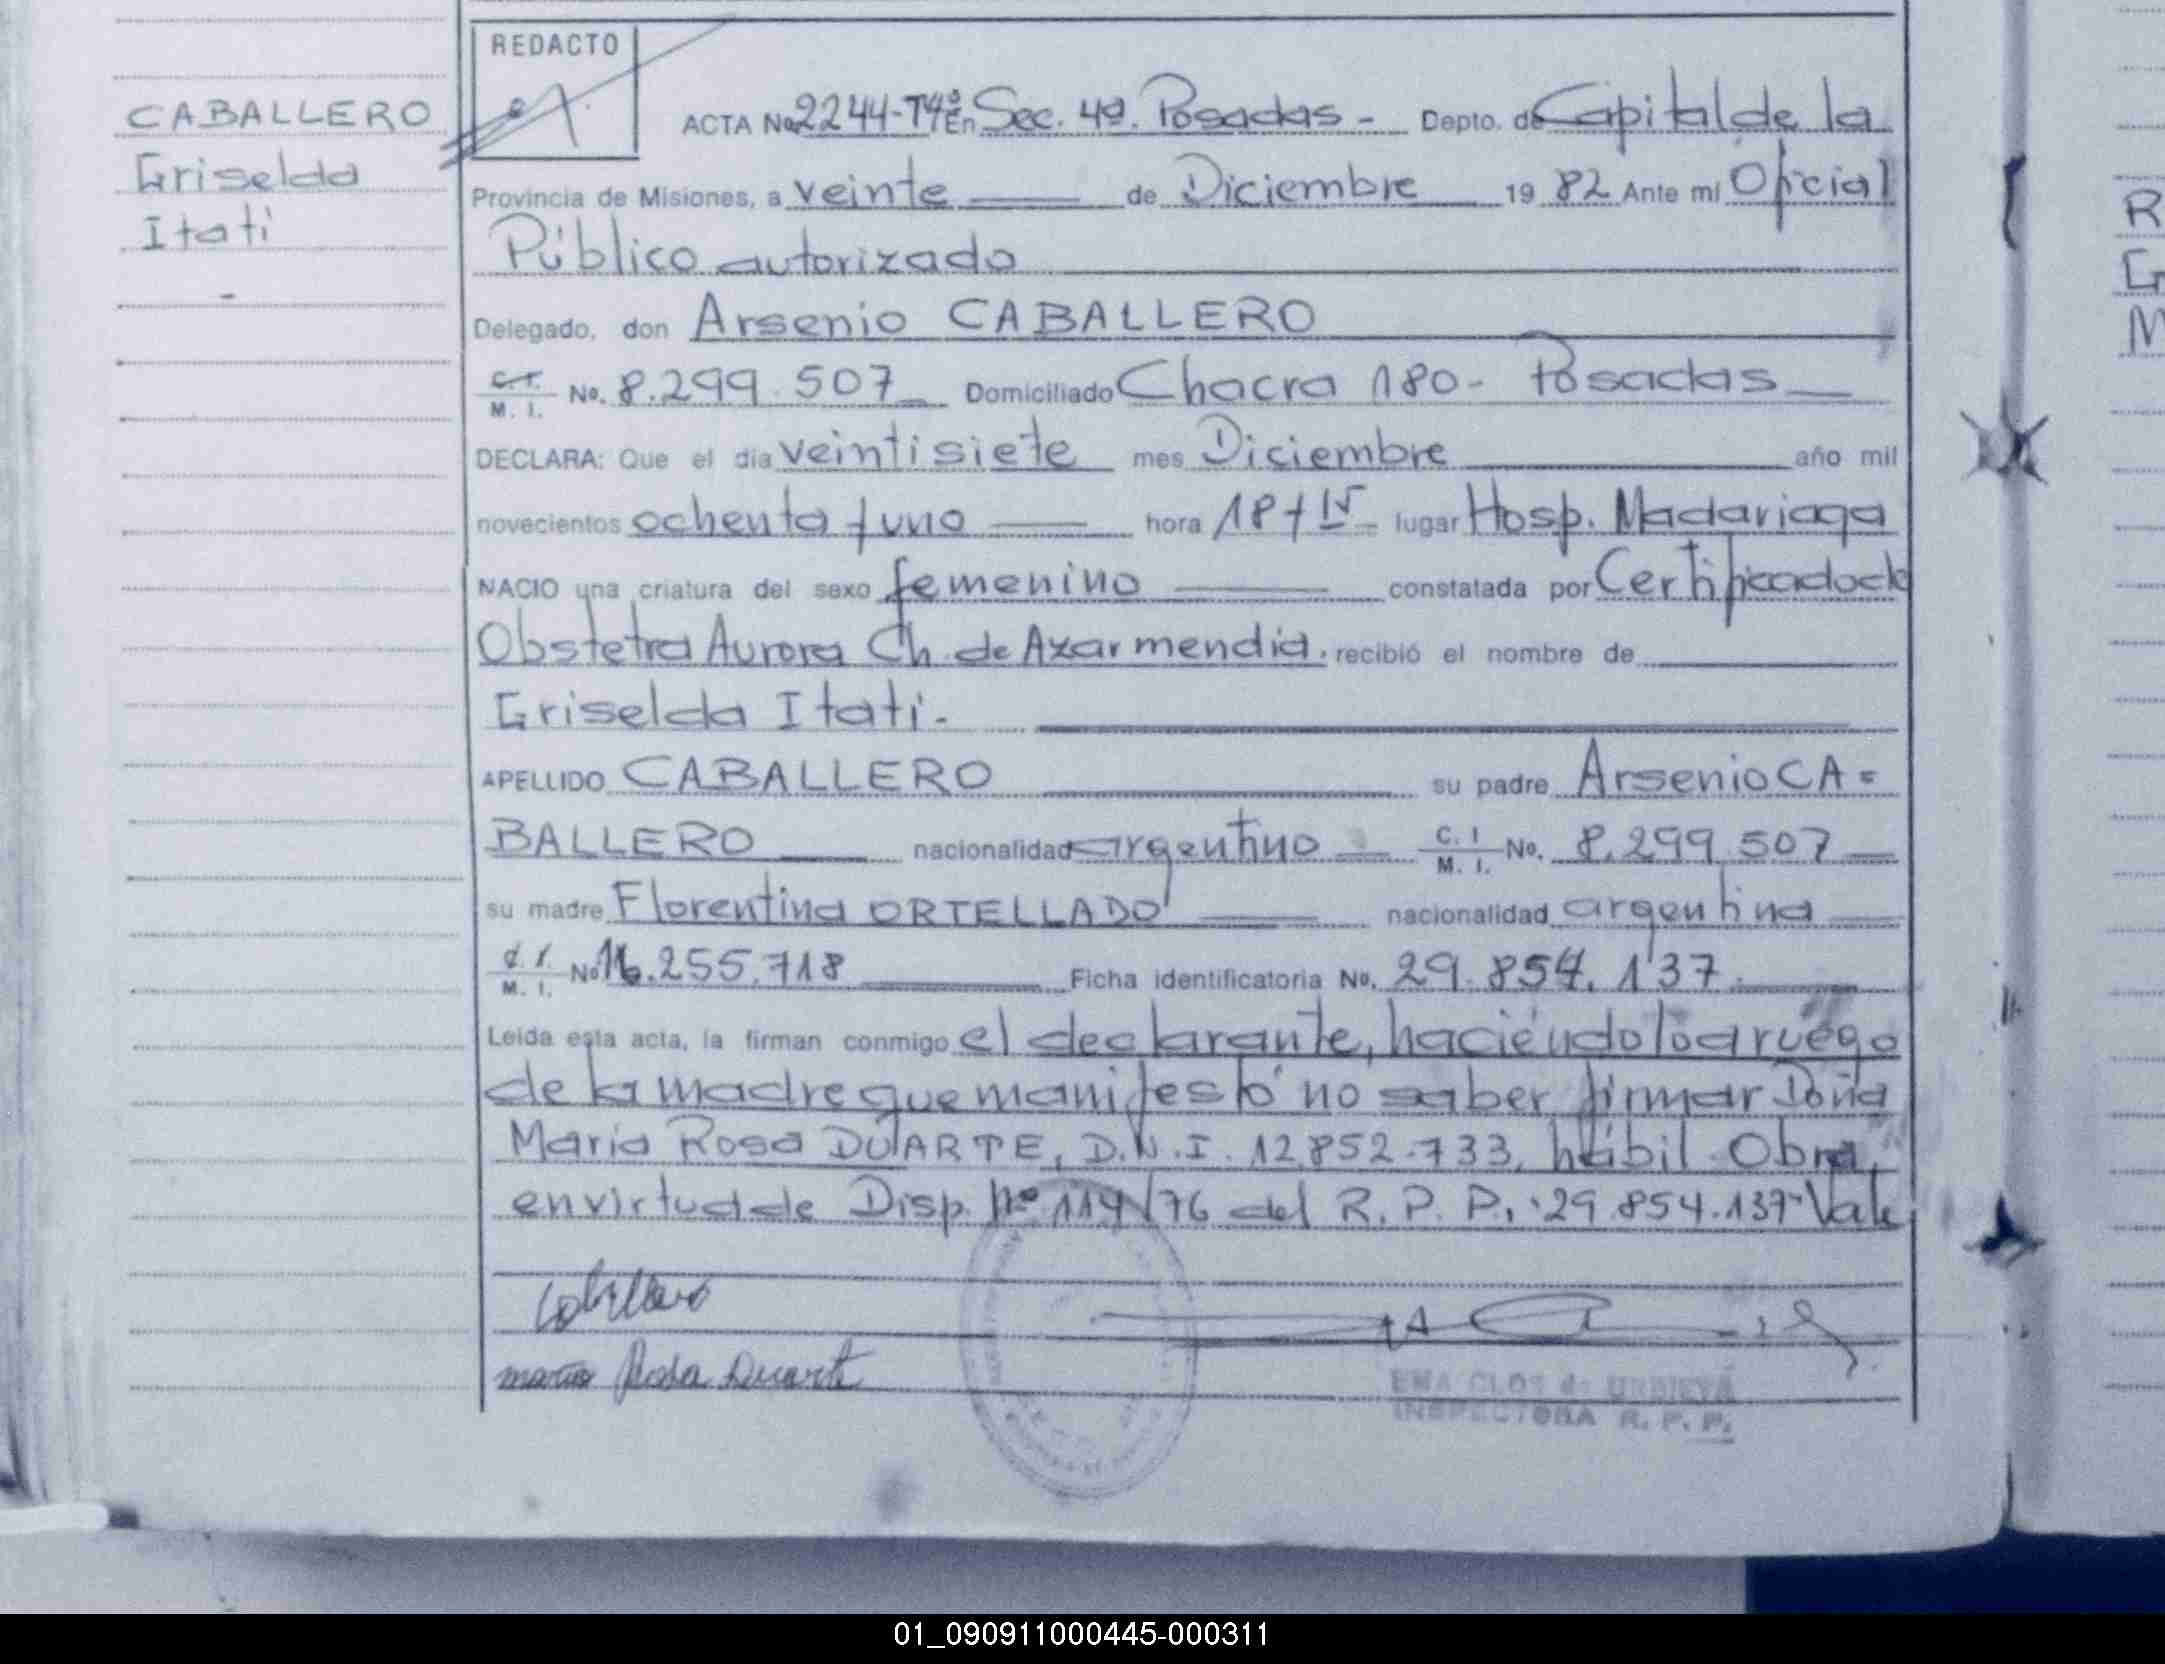 REDACTO
CABALLERO
Griselda
Itatí
ACTA No. 2244-T4º En Sec. 4ª. Posadas - Depto. de Capital de la
Provincia de Misiones, a veinte de Diciembre 19 82 Ante mí Oficial
Público autorizado
Delegado, don Arsenio CABALLERO
C.I. M. I. No. 8.299.507 Domiciliado Chacra 180- Posadas
DECLARA: Que el día veintisiete mes Diciembre año mil
novecientos ochenta y uno hora 18 y 15 lugar Hosp. Madariaga
NACIO una criatura del sexo femenino constatada por Certificado de
Obstetra Aurora Ch. de Azarmendia. recibió el nombre de
Griselda Itatí.
APELLIDO CABALLERO su padre Arsenio CA=
BALLERO nacionalidad argentino C. I M. I. No. 8.299.507
su madre Florentina ORTELLADO nacionalidad argentina
C.I. M. I. No 16.255.718 Ficha identificatoria No. 29.854.137
Leída esta acta, la firman conmigo el declarante, haciéndolo a ruego
de la madre que manifestó no saber firmar Doña
María Rosa DUARTE, D.N.I. 12.852.733, hábil. Obra,
en virtud de Disp. Nº 114/76 del R. P. P. "29.854.137" Vale
Caballero
maria Rosa Duarte
EMA CLOS de URBIETA
INSPECTORA R. P. P.
R
G
M
01_090911000445-000311